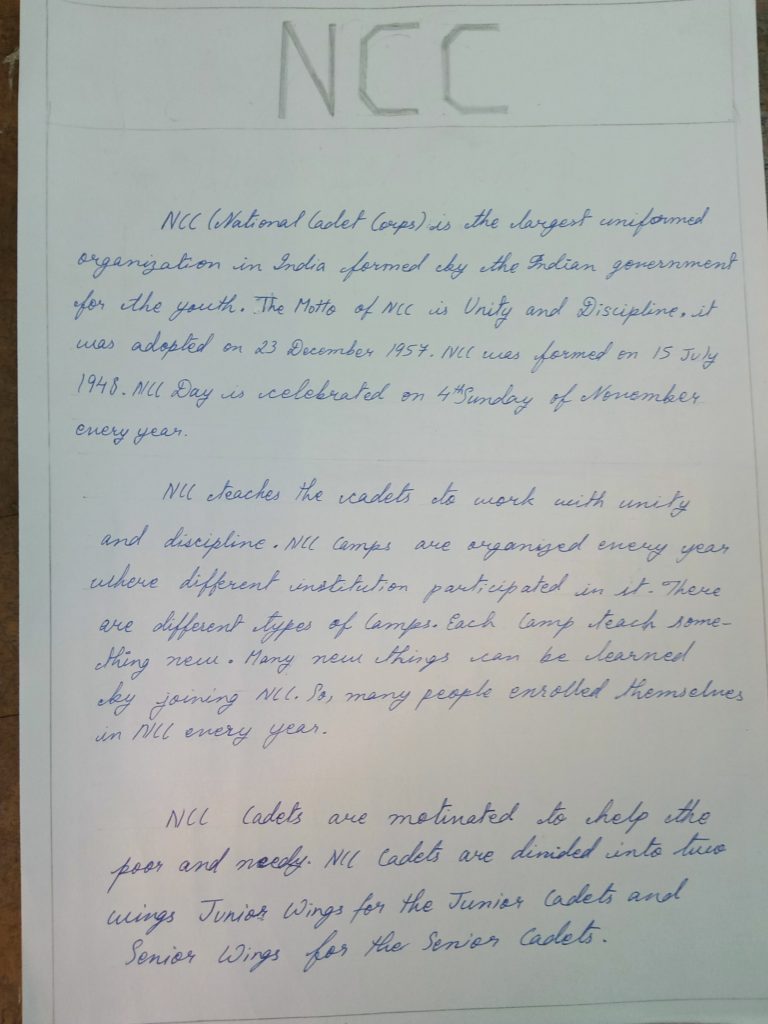 NCC
NCC (National Cadet Corps) is the largest uniformed
organization in India formed by the Indian government
for the youth. The Motto of NCC is Unity and Discipline. it
was adopted on 23 December 1957. NCC was formed on 15 July
1948. NCC Day is celebrated on 4th Sunday of November
every year.
NCC teaches the cadets to work with unity
and discipline. NCC Camps are organized every year
where different institution participated in it. There
are different types of Camps. Each Camp teach some-
thing new. Many new things can be learned
by joining NCC. So, many people enrolled themselves
in NCC every year.
NCC Cadets are motivated to help the
poor and needy. NCC Cadets are divided into two
wings Junior Wings for the Junior Cadets and
Senior Wings for the Senior Cadets.